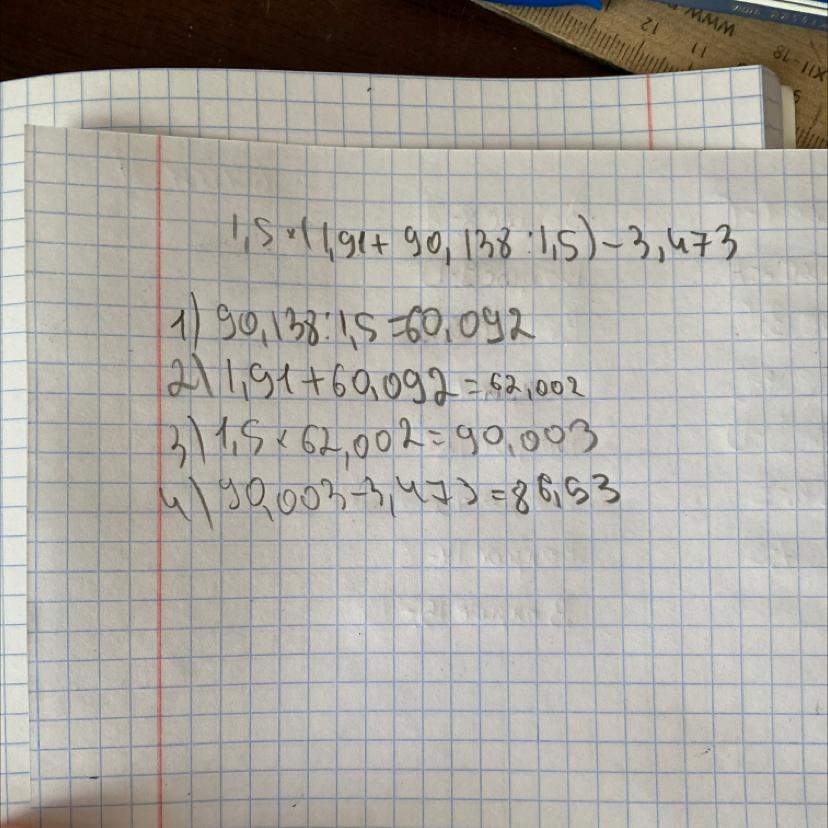 1,5×(1,91+90,138:1,5)-3,473
1) 90,138:1,5=60,092
2) 1,91+60,092=62,002
3) 1,5×62,002=90,003
4) 90,003-3,473=86,53